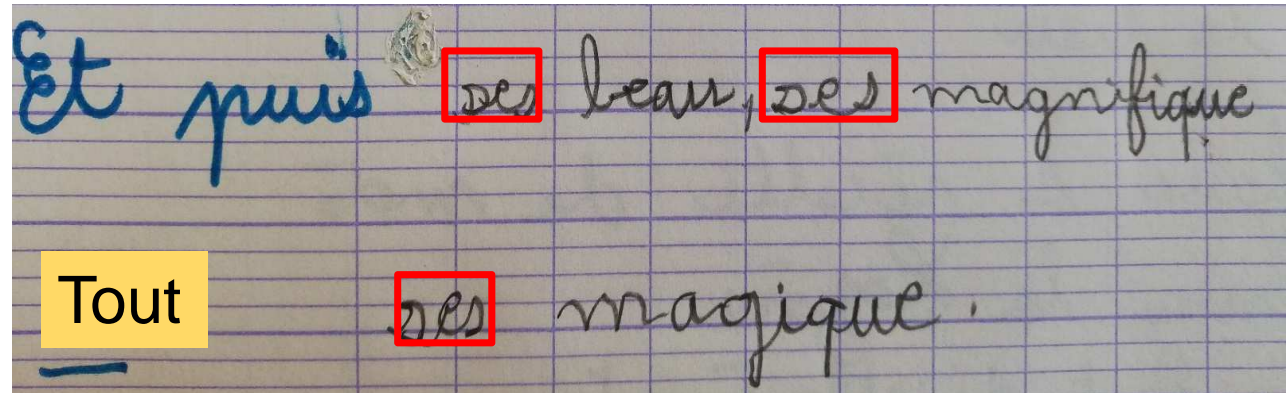 Et puis ses beau, ses magnifique
Tout ses magique.